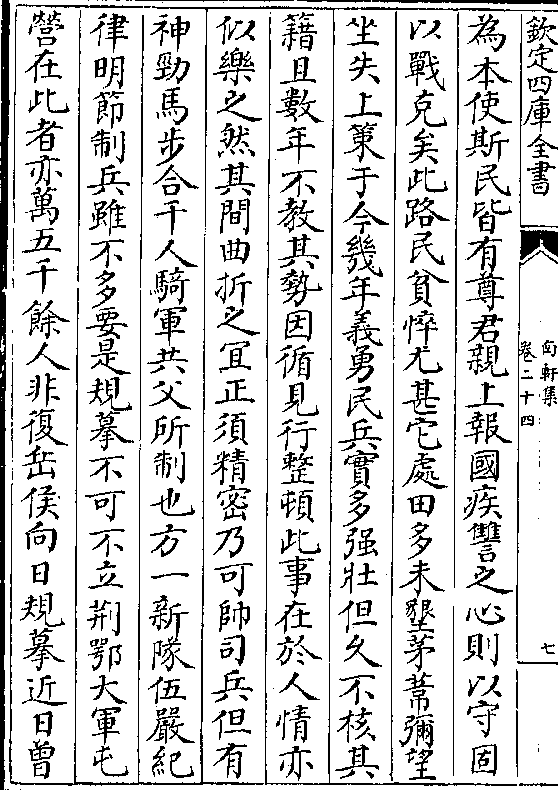 欽定四庫全書
南軒集
卷二十四
七
為本使斯民皆有尊君親上報國疾讐之心則以守固
以戰克矣此路民貧悴尤甚它處田多未墾茅葦彌望
坐失上策于今幾年義勇民兵實多强壮但久不核其
籍且數年不教其勢因循見行整頓此事在於人情亦
似樂之然其間曲折之宜正須精密乃可帥司兵但有
神勁馬步合千人騎軍共父所制也方一新隊伍嚴紀
律明節制兵雖不多要是規摹不可不立荆鄂大軍屯
營在此者亦萬五千餘人非復岳侯向日規摹近日曾